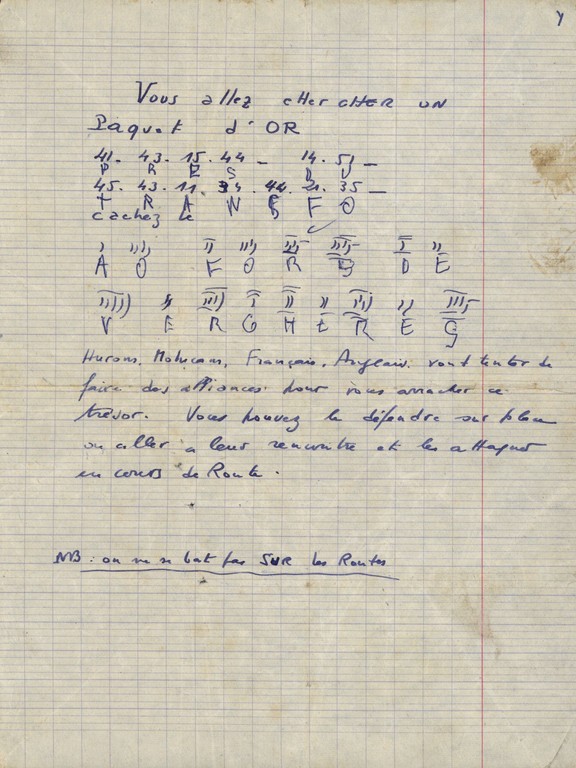 Y
Vous allez chercher un
Paquet d'OR
41. 43. 15. 44 - 14. 51 -
P R E S D
45. 43. 11. 34. 44. 21. 35 -
T R A N S F O
cachez le
A O F O R D E
V E R G H E R E S
Hurons, Mohicans, Français, Anglais vont tenter de
faire des alliances pour vous arracher ce
trésor. Vous pouvez le défendre sur place
ou aller a leur rencontre et les attaquer
en cours de Route.
NB : on ne se bat pas SUR les Routes